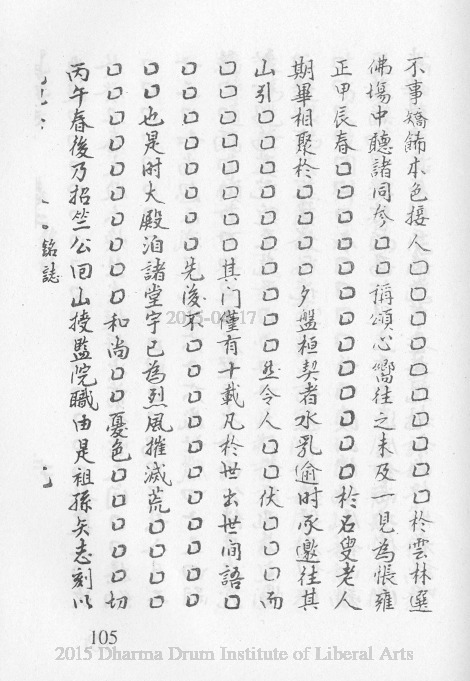 不事嬌餙本色接人□□□□□□□□□□於雲林選
佛塲中聽諸同参□□稱頌心嚮往之未及一見為悵雍
正甲辰春□□□□□□□□□□□□□於石叟老人
期畢相聚於□□□□□夕盤桓契者水乳逾时承邀往其
山引□□□□□□□□□□然令人□□伏□□□而
□□□□□□□□其门僅有十載凡於世出世间語□
□□□□□□□□先後不□□□□□□□□□□□
□□也是时大殿洎諸堂宇已為烈風摧滅荒□□□□
□□□□□□□□□□和尚□□憂色□□□□□切
丙午春後乃招竺公回山授監院職由是祖孫矢志刻以
銘誌
105
2015 Dharma Drum Institute of Liberal Arts